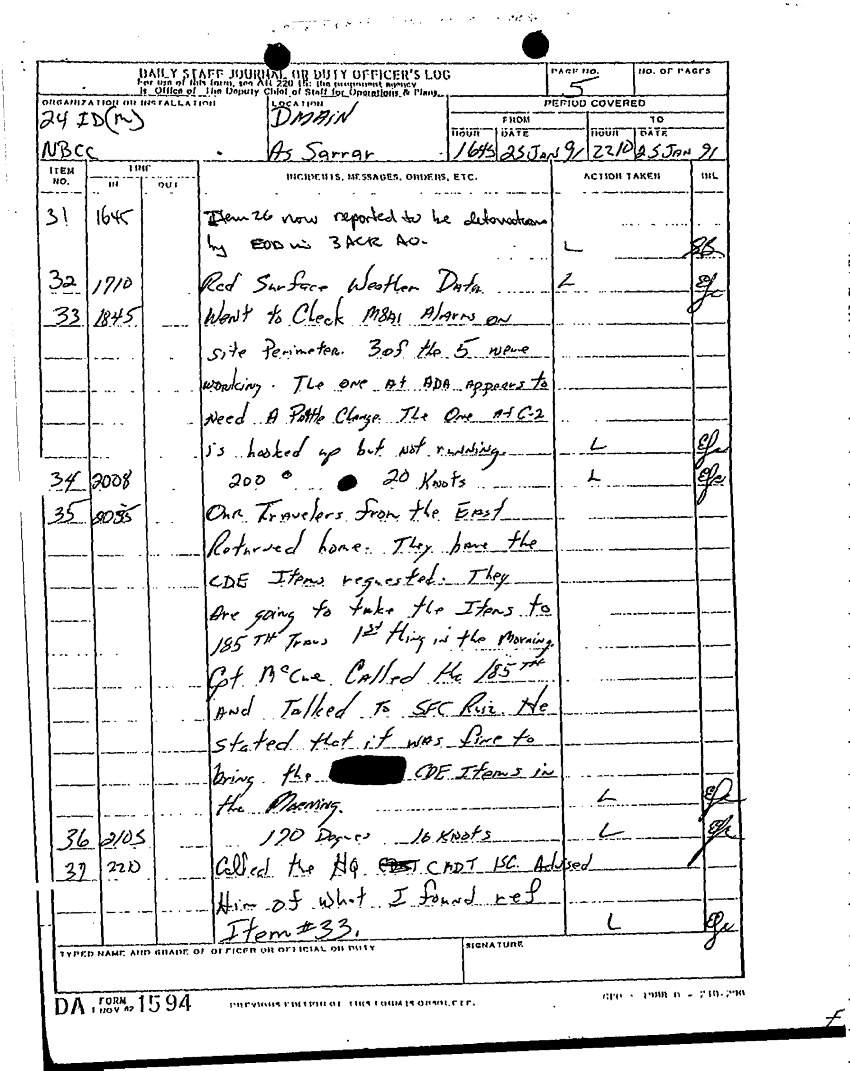 DAILY STAFF JOURNAL OR DUTY OFFICER'S LOG
For use of this form, see AR 220-15; the proponent agency
is Office of The Deputy Chief of Staff for Operations & Plans.
PAGE NO.
5
NO. OF PAGES
ORGANIZATION OR INSTALLATION
24 ID(M)
NBCC
LOCATION
DMAIN
As Sarrar
PERIOD COVERED
FROM TO
HOUR DATE HOUR DATE
1645 25 JAN 91 2210 25 JAN 91
ITEM NO. TIME INCIDENTS, MESSAGES, ORDERS, ETC. ACTION TAKEN INL
IN OUT
31 1645 Item 26 now reported to be detonations
by EOD in 3 ACR AO. L
32 1710 Rcd Surface Weather Data L
33 1845 Went to Check M8A1 Alarms on
site Perimeter. 3 of the 5 were
working. The one At ADA Appears to
Need A Change. The One At C-2
is hooked up but not running. L
34 2008 200 ° 20 Knots L
35 Our Travelers from the East
Returned home. They have the
CDE Items requested. They
Are going to take the Items to
185 TH Trans 1st thing in the Morning.
Cpt McCue Called the 185 TH
And Talked To SFC Ruiz He
stated that it was fine to
bring the CDE Items in
the Morning. L
36 2105 170 Degrees 16 Knots L
37 2210 Called the HQ Advised
Him of what I found ref
Item #33. L
TYPED NAME AND GRADE OF OFFICER OR OFFICIAL ON DUTY
SIGNATURE
DA FORM 1 NOV 62 1594
PREVIOUS EDITION OF THIS FORM IS OBSOLETE.